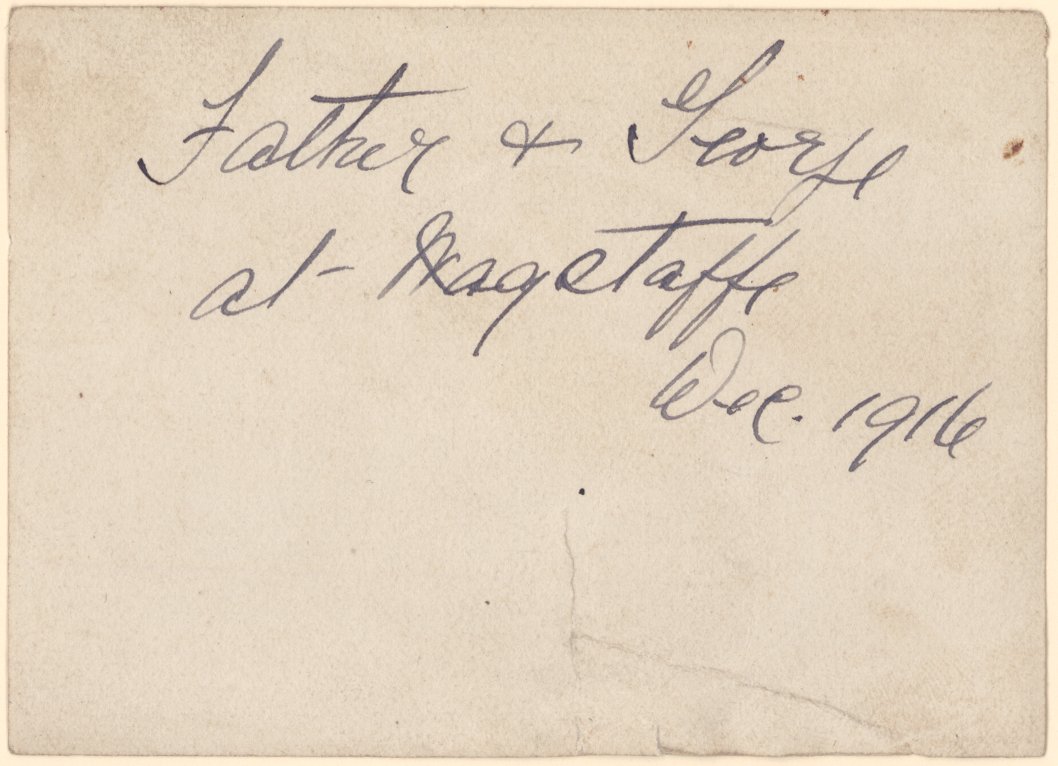 Father & George
at Wagstaffe
Dec. 1916